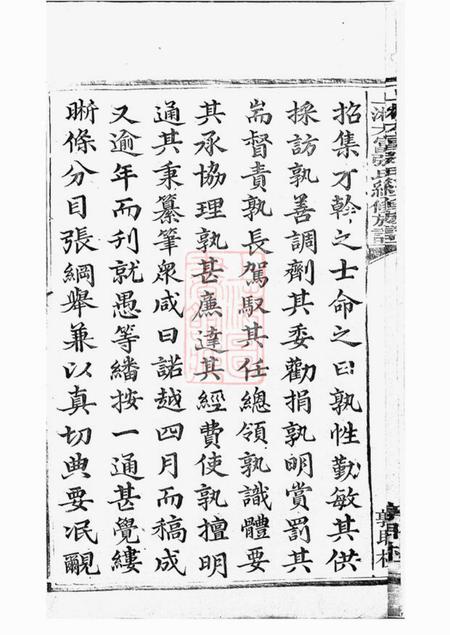 招集才幹之士命之曰孰性勤敏其供
採訪孰善調劑其委勸捐孰明賞罰其
耑督責孰長駕馭其任總領孰識體要
其承協理孰甚廉達其經費使孰擅明
通其秉纂筆衆咸曰諾越四月而稿成
又逾年而刋就愚等繙按一通甚覺縷
晰條分目張綱舉兼以真切典要冺覼